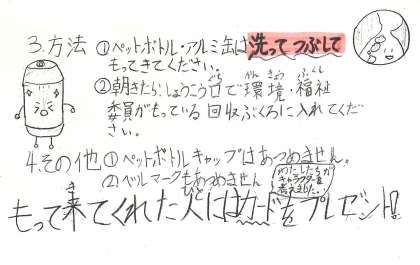 3.方法 ①ペットボトル・アルミ缶は洗ってつぶして
もってきてください。
②朝きたら、しょうこう口で環境・福祉
委員がもっている回収ぶくろに入れてくだ
さい。
4.その他 ①ペットボトルキャップはあつめません。
②ベルマークもあつめません
わたしたちが
キャラクターを
考えました。
もって来てくれた人にはカードをプレゼント!